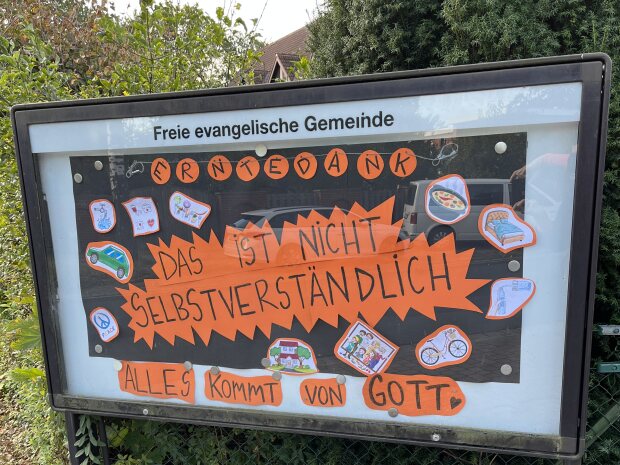 Freie evangelische Gemeinde
ERNTEDANK
DAS IST NICHT
SELBSTVERSTÄNDLICH
ALLES KOMMT VON GOTT.